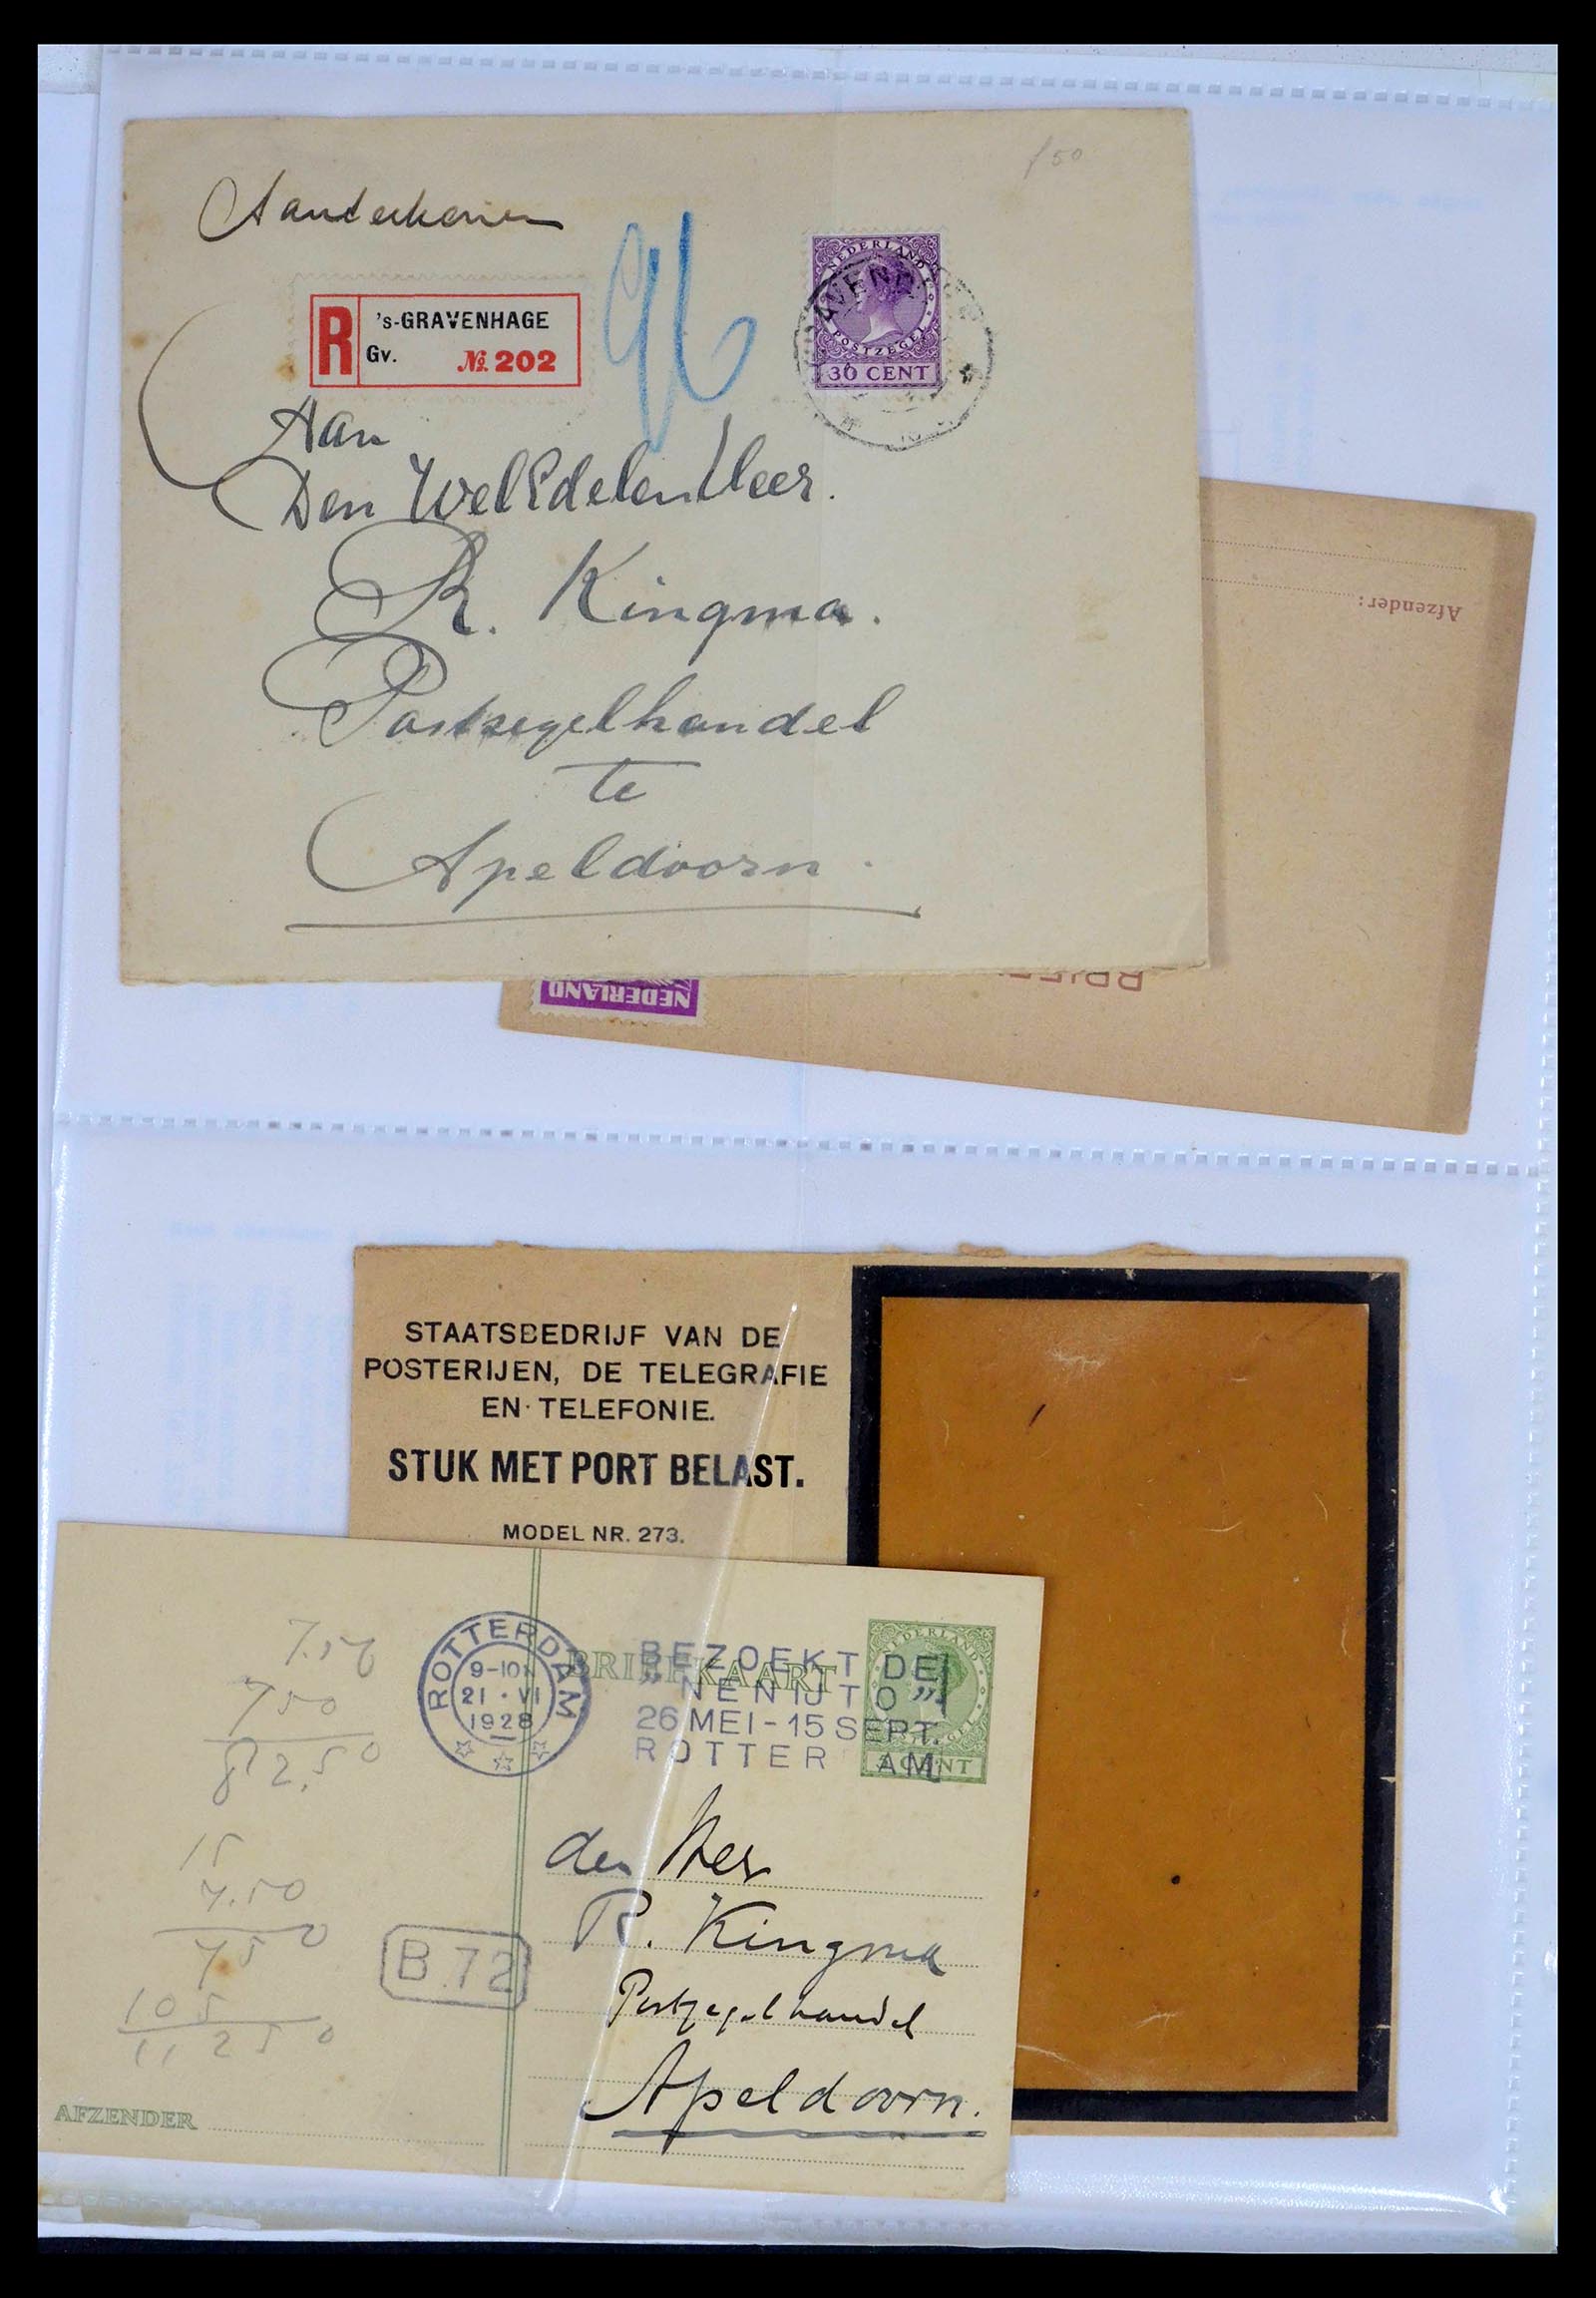 f 50
Aantekenen
R
's-GRAVENHAGE
Gv. № 202
96
NEDERLAND
POSTZEGEL
30 CENT
Aan
Den WelEdelen Heer.
R. Kingma.
Postzegelhandel
te
Apeldoorn.
Afzender:
NEDERLAND
STAATSBEDRIJF VAN DE
POSTERIJEN, DE TELEGRAFIE
EN TELEFONIE.
STUK MET PORT BELAST.
MODEL NR. 273.
ROTTERDAM
9-10
21 · VI
1928
BRIEFKAART
BEZOEKT DE
"NENIJTO"
26 MEI - 15 SEPT.
ROTTER AM
NEDERLAND
CENT
7.50
750
82,50
15
7.50
750
105
11250
B.72
den Heer
R. Kingma
Postzegelhandel
Apeldoorn.
AFZENDER